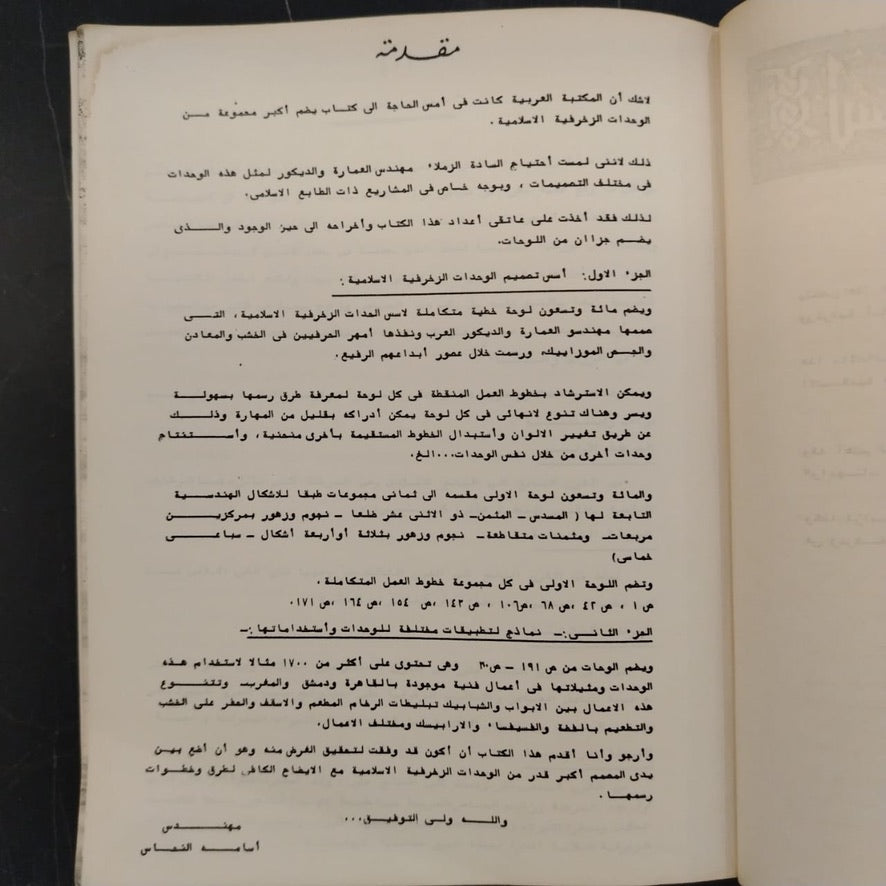 مقدمة
لاشك أن المكتبة العربية كانت فى أمس الحاجة الى كتاب يضم أكبر مجموعة من
الوحدات الزخرفية الاسلامية .
ذلك لاننى لمست أحتياج السادة الزملاء مهندس العمارة والديكور لمثل هذه الوحدات
فى مختلف التصميمات ، وبوجه خاص فى المشاريع ذات الطابع الاسلامى.
لذلك فقد أخذت على عاتقى أعداد هذا الكتاب وأخراجه الى حين الوجود والذى
يضم جزاان من اللوحات.
الجزء الاول: أسس تصميم الوحدات الزخرفية الاسلامية :
ويضم مائة وتسعون لوحة خطية متكاملة لاسس الحدات الزخرفية الاسلامية ، التى
صممها مهندسو العمارة والديكور العرب ونفذها أمهر الحرفيين فى الخشب والمعادن
والجص الموزاييك، ورسمت خلال عصور أبداعهم الرفيع.
ويمكن الاسترشاد بخطوط العمل المنقطة فى كل لوحة لمعرفة طرق رسمها بسهولة
ويسر وهناك تنوع لانهائى فى كل لوحة يمكن أدراكه بقليل من المهارة وذلك
عن طريق تغيير الالوان وأستبدال الخطوط المستقيمة بأخرى منحنية ، وأستنتاج
وحدات أخرى من خلال نفس الوحدات...الخ.
والمائة وتسعون لوحة الاولى مقسمه الى ثمانى مجموعات طبقا للاشكال الهندسية
التابعة لها ( المسدس - المثمن- ذو الاثنى عشر ضلعا - نجوم وزهور بمركزين
مربعات- ومثمنات متقاطعة- نجوم وزهور بثلاثة أوأربعة أشكال - سباعى
خماسى)
وتضم اللوحة الاولى فى كل مجموعة خطوط العمل المتكاملة ،
ص ١ ، ص ٤٢ ،ص ٦٨ ،ص١٠٦ ، ص ١٤٢ ،ص ١٥٤ ،ص ١٦٤ ،ص ١٧١.
الجزء الثانى:- نماذج لتطبيقات مختلفة للوحدات وأستخداماتها:-
ويضم الوحات من ص ١٩١ - ص٣٠٠ وهى تحتوى على أكثر من ١٧٠٠ مثالا لاستخدام هذه
الوحدات ومثيلاتها فى أعمال فنية موجودة بالقاهرة ودمشق والمغرب- وتتنوع
هذه الاعمال بين الابواب والشبابيك تبليطات الرخام المطعم والاسقف والحفر على الخشب
والتطعيم بالفضة والفسيفساء والارابيسك ومختلف الاعمال.
وأرجو وأنا أقدم هذا الكتاب أن أكون قد وفقت لتحقيق الغرض منه وهو أن أضع بين
يدى المصمم أكبر قدر من الوحدات الزخرفية الاسلامية مع الايضاح الكافى لطرق وخطوات
رسمها.
والله ولى التوفيق...
مهندس
أسامه النحاس